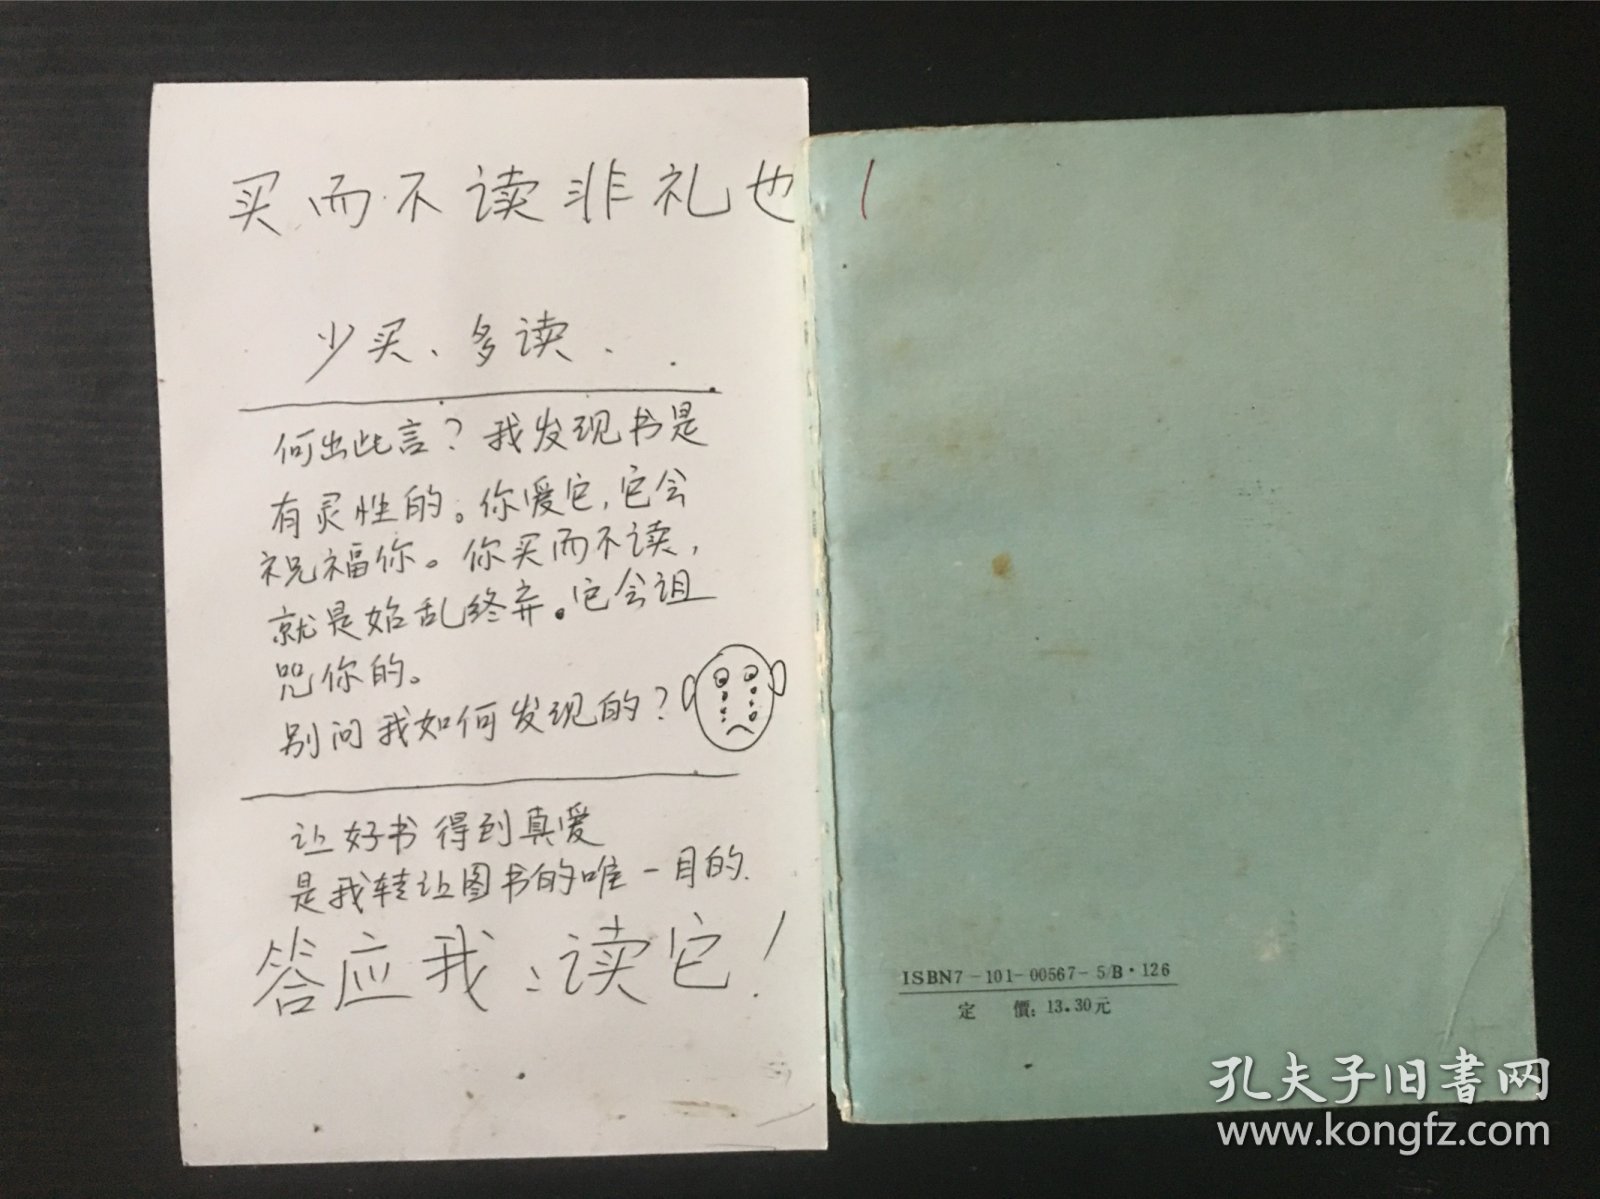 买而不读非礼也
少买、多读、
何出此言？我发现书是
有灵性的。你爱它，它会
祝福你。你买而不读，
就是始乱终弃。它会诅
咒你的。
别问我如何发现的？
让好书得到真爱
是我转让图书的唯一目的.
答应我：读它！
ISBN7-101-00567-5/B·126
定 價：13.30元
孔夫子旧書网
www.kongfz.com